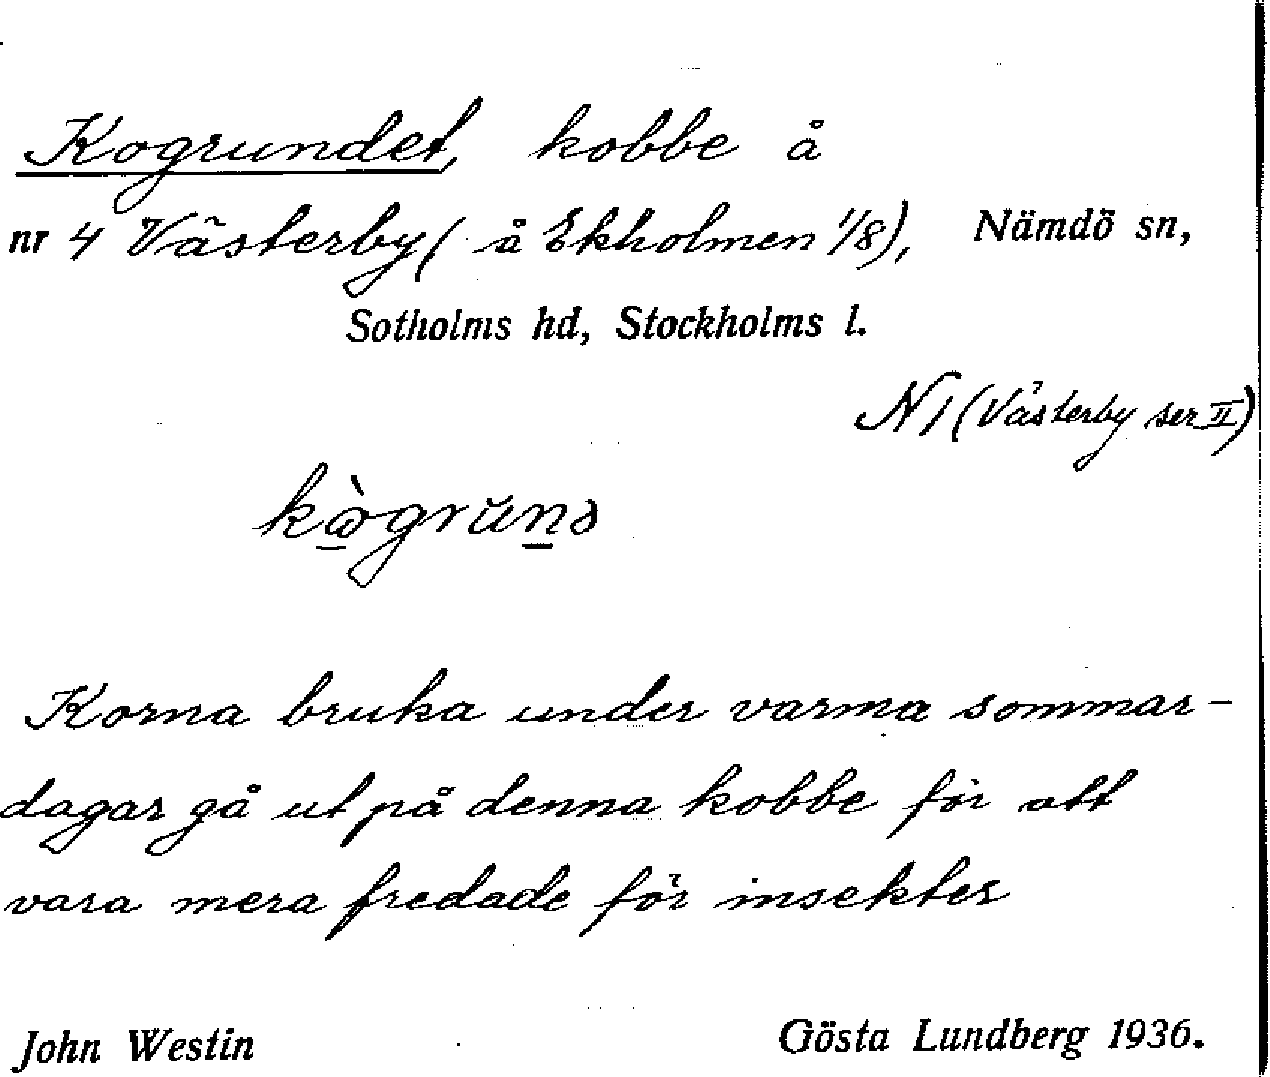 Kogrundet, kobbe å
nr 4 Västerby ( å Ekholmen 1/8), Nämdö sn,
Sotholms hd, Stockholms l.
N 1 (Västerby ser II)
Korna bruka under varma sommar-
dagar gå ut på denna kobbe för att
vara mera fredade för insekter
John Westin Gösta Lundberg 1936.